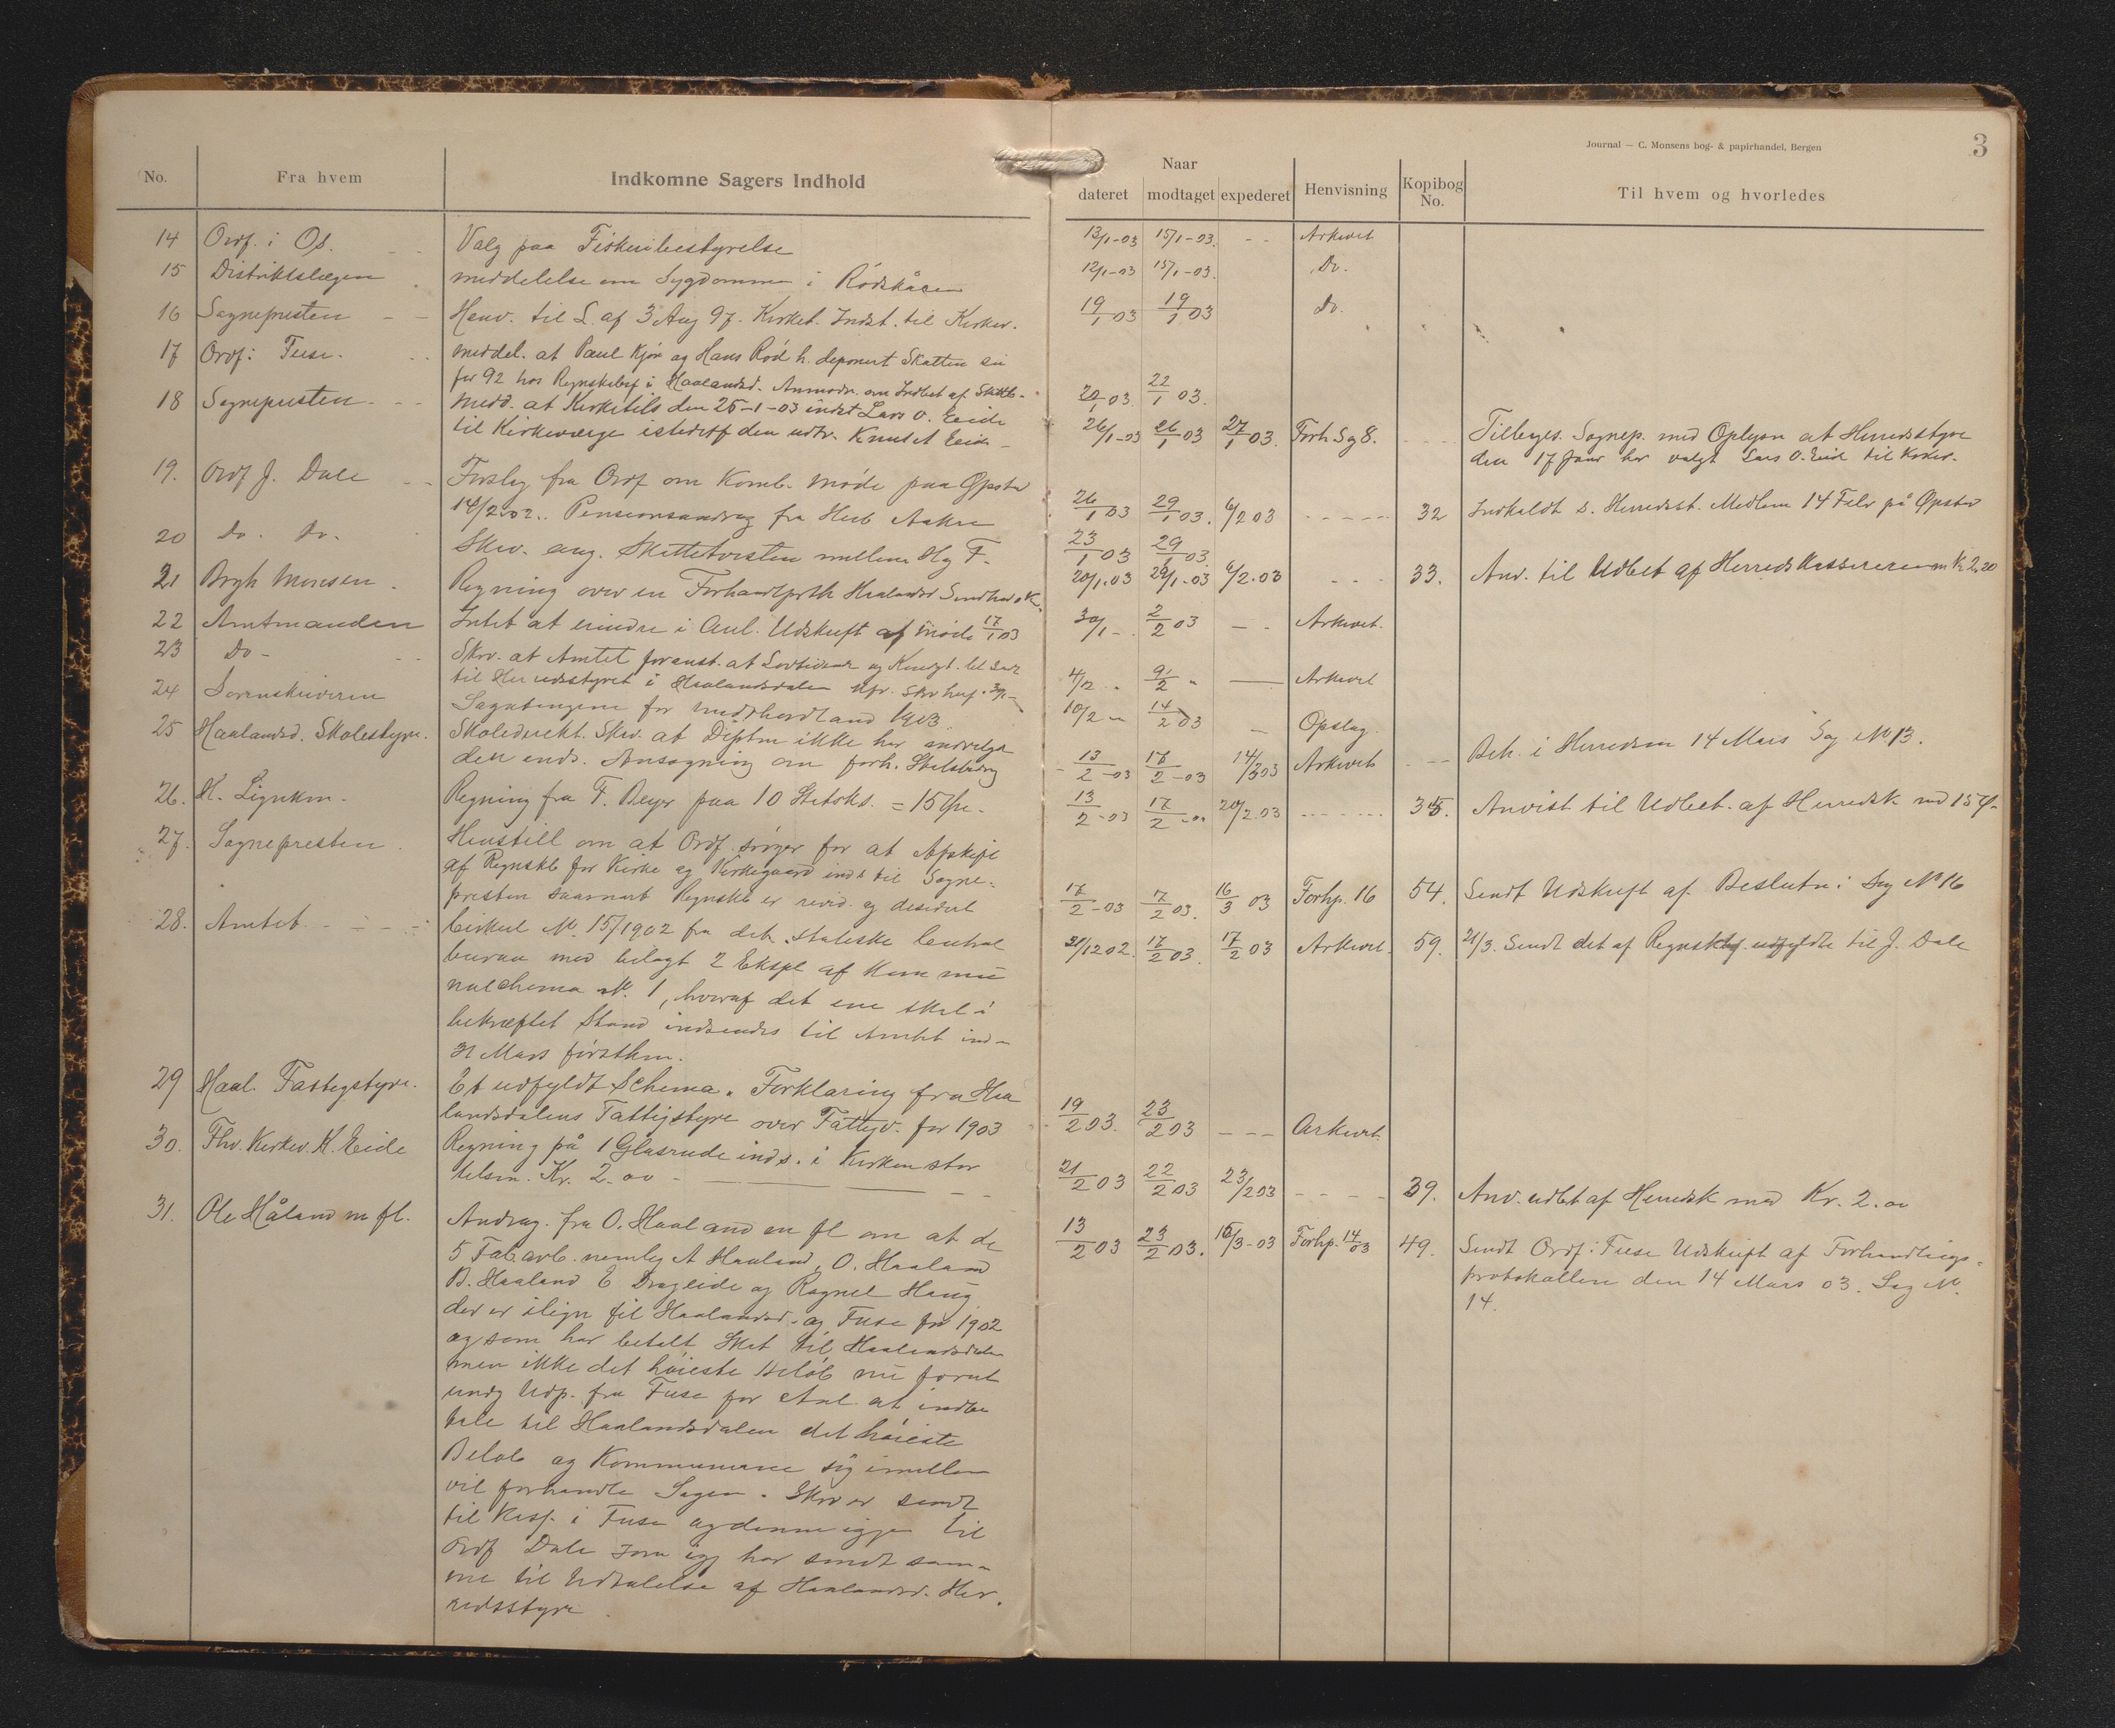 Journal — C. Monsens bog- & papirhandel, Bergen
3
No. Fra hvem Indkomne Sagers Indhold
Naar
dateret modtaget expederet Henvisning Kopibog No. Til hvem og hvorledes
14 Ordf. i Os. Valg paa Fiskeribestyrelse 13/1-03 15/1-03. - - Arkivet
15 Distriktslægen meddelelse om Sygdommen i Rödskåsen 12/1-03 15/1-03. Do.
16 Sognepresten - - Henv. til L. af 3 Aug 97. Kirket. Indst. til Kirkev. 19/1 03 19/1 03 Do.
17 Ordf: Fuse. - - meddel. at Paul Kjön og Hans Röd h. deponert Skatten sin
for 92 hos Regnskabsf i Haalandsd. Anmodn. om Indbet af Skatteb. 20/1 03. 22/1 03.
18 Sognepresten - - Medd. at Kirketils den 25-1-03 indst Lars O. Eide
til Kirkeværge istedetf den udtr. Knut A Eide 26/1-03 26/1 03 27/1 03. Forh. Sg 8. Tilbages. Sognep. med Oplysn at Herredsstyre
den 17 Janr har valgt Lars O. Eide til Kirkev.
19. Ordf J. Dale - - Forslag fra Ordf om Komb. Møde paa Øpstad
14/2 03. Pensionsandrag fra Herb Aakre 26/1 03 29/1 03. 6/2 03 - - - - - 32 Indkaldt s. Herredsst. Medlem 14 Febr på Øpstad
20 Do. Do. Skr. ang. Skattetvisten mellem H og F. 23/1 03 29/1 03.
21 Brgh Monsen. Regning over en Forhandlprtk Haalandsd Sendhed o K. 20/1.03 29/1-03 6/2.03 - - - 33. Anv. til Udbet af Herredskassereren m Kr 2,20
22 Amtmanden Intet at erindre i Anl. Udskrift af møde 17/1 03 30/1 - . 2/2 03 — - Arkivet.
23 Do - Skr. at Amtet foranst. at Lovtidende og Kundgt. bl. send
til Herredsstyret i Haalandsdalen Kfr. skr herf. 30/1 - 4/2 „ 9/2 „ — Arkivet
24 Sorenskriveren Sagntingene for Midthordland 1903. 10/2 - 14/2 03 — Opslag
25 Haalandsd. Skolestyre. Skoledirekt. Skr. at Dieptm ikke har indvilget
den ends. Ansøgning om forh. Statsbidrag 13/2-03 17/2-03 14/3 03 Arkivet - - Beh. i Herredsm 14 Mars Sag No 13.
26. K. Lignkm. Regning fra F. Beyer paa 10 Skatoks. = 15 Øre. 13/2-03 17/2-03 20/2.03 - - - - - - 35. Anvist til Udbet. af Herredsk med 15 Ø-
27. Sognepresten. Henstill om at Ordf. sörger for at Afskrift
af Regnskb for Kirke og Kirkegaard inds til Sogne-
presten saasnart Regnskb er revid. og desidert 17/2-03 17/2 03. 16/3 03 Forhp. 16 54. Sendt Udskrift af Beslutn i Sag No 16
28. Amtet. - - - - Cirkul No. 15/1902 fra det statistiske Central
bureau med bilagt 2 Ekspl af Kommu
nalchema No. 1, hvoraf det ene skal i
bekræftet Stand indsendes til Amtet ind-
31 Mars förstkm. 30/12 02. 17/2 03. 17/2 03 Arkivet. 59. 21/3. Sendt det af Regnsk. udfyldte til J. Dale
29 Haal. Fattigstyre. Et udfyldt Schema „ Forklaring fra Haa
landsdalens Fattigstyre over Fattigv. for 1903 19/2 03. 23/2 03 - - - Arkivet.
30. Fhv. Kirkev. K. Eide Regning på 1 Glasrude inds. i Kirken stör
relsen. Kr. 2.00 - — — — - - 21/2 03 22/2 03 23/2 03 - - - - 39. Anv. udbt af Herredsk med Kr. 2.00
31. Ole Håland m fl. Andrag. fra O. Haaland m fl om at de
5 Fabarb. nemlig A Haaland, O. Haaland
B. Haaland E Drageide og Ragnel Haug
der er ilign til Haalandsd. og Fuse for 1902
og som har betalt Skat til Haalandsdalen
men ikke det höieste Belöb nu forut
undg Udp. fra Fuse for Anl. at indbe
tale til Haalandsdalen det höieste
Belöb og Kommunerne sig imellem
vil forhandle Sagen. Skr er sendt
til Kasf. i Fuse og denne igjen til
Ordf Dale som igj har sendt sam-
me til Udtalelse af Haalandsd. Her.
redsstyre. 13/2 03 23/2 03. 16/3-03 Forhp. 14/03 49. Sendt Ordf: Fuse Udskrift af Forhandlings-
protokollen den 14 Mars 03. Sag No.
14.